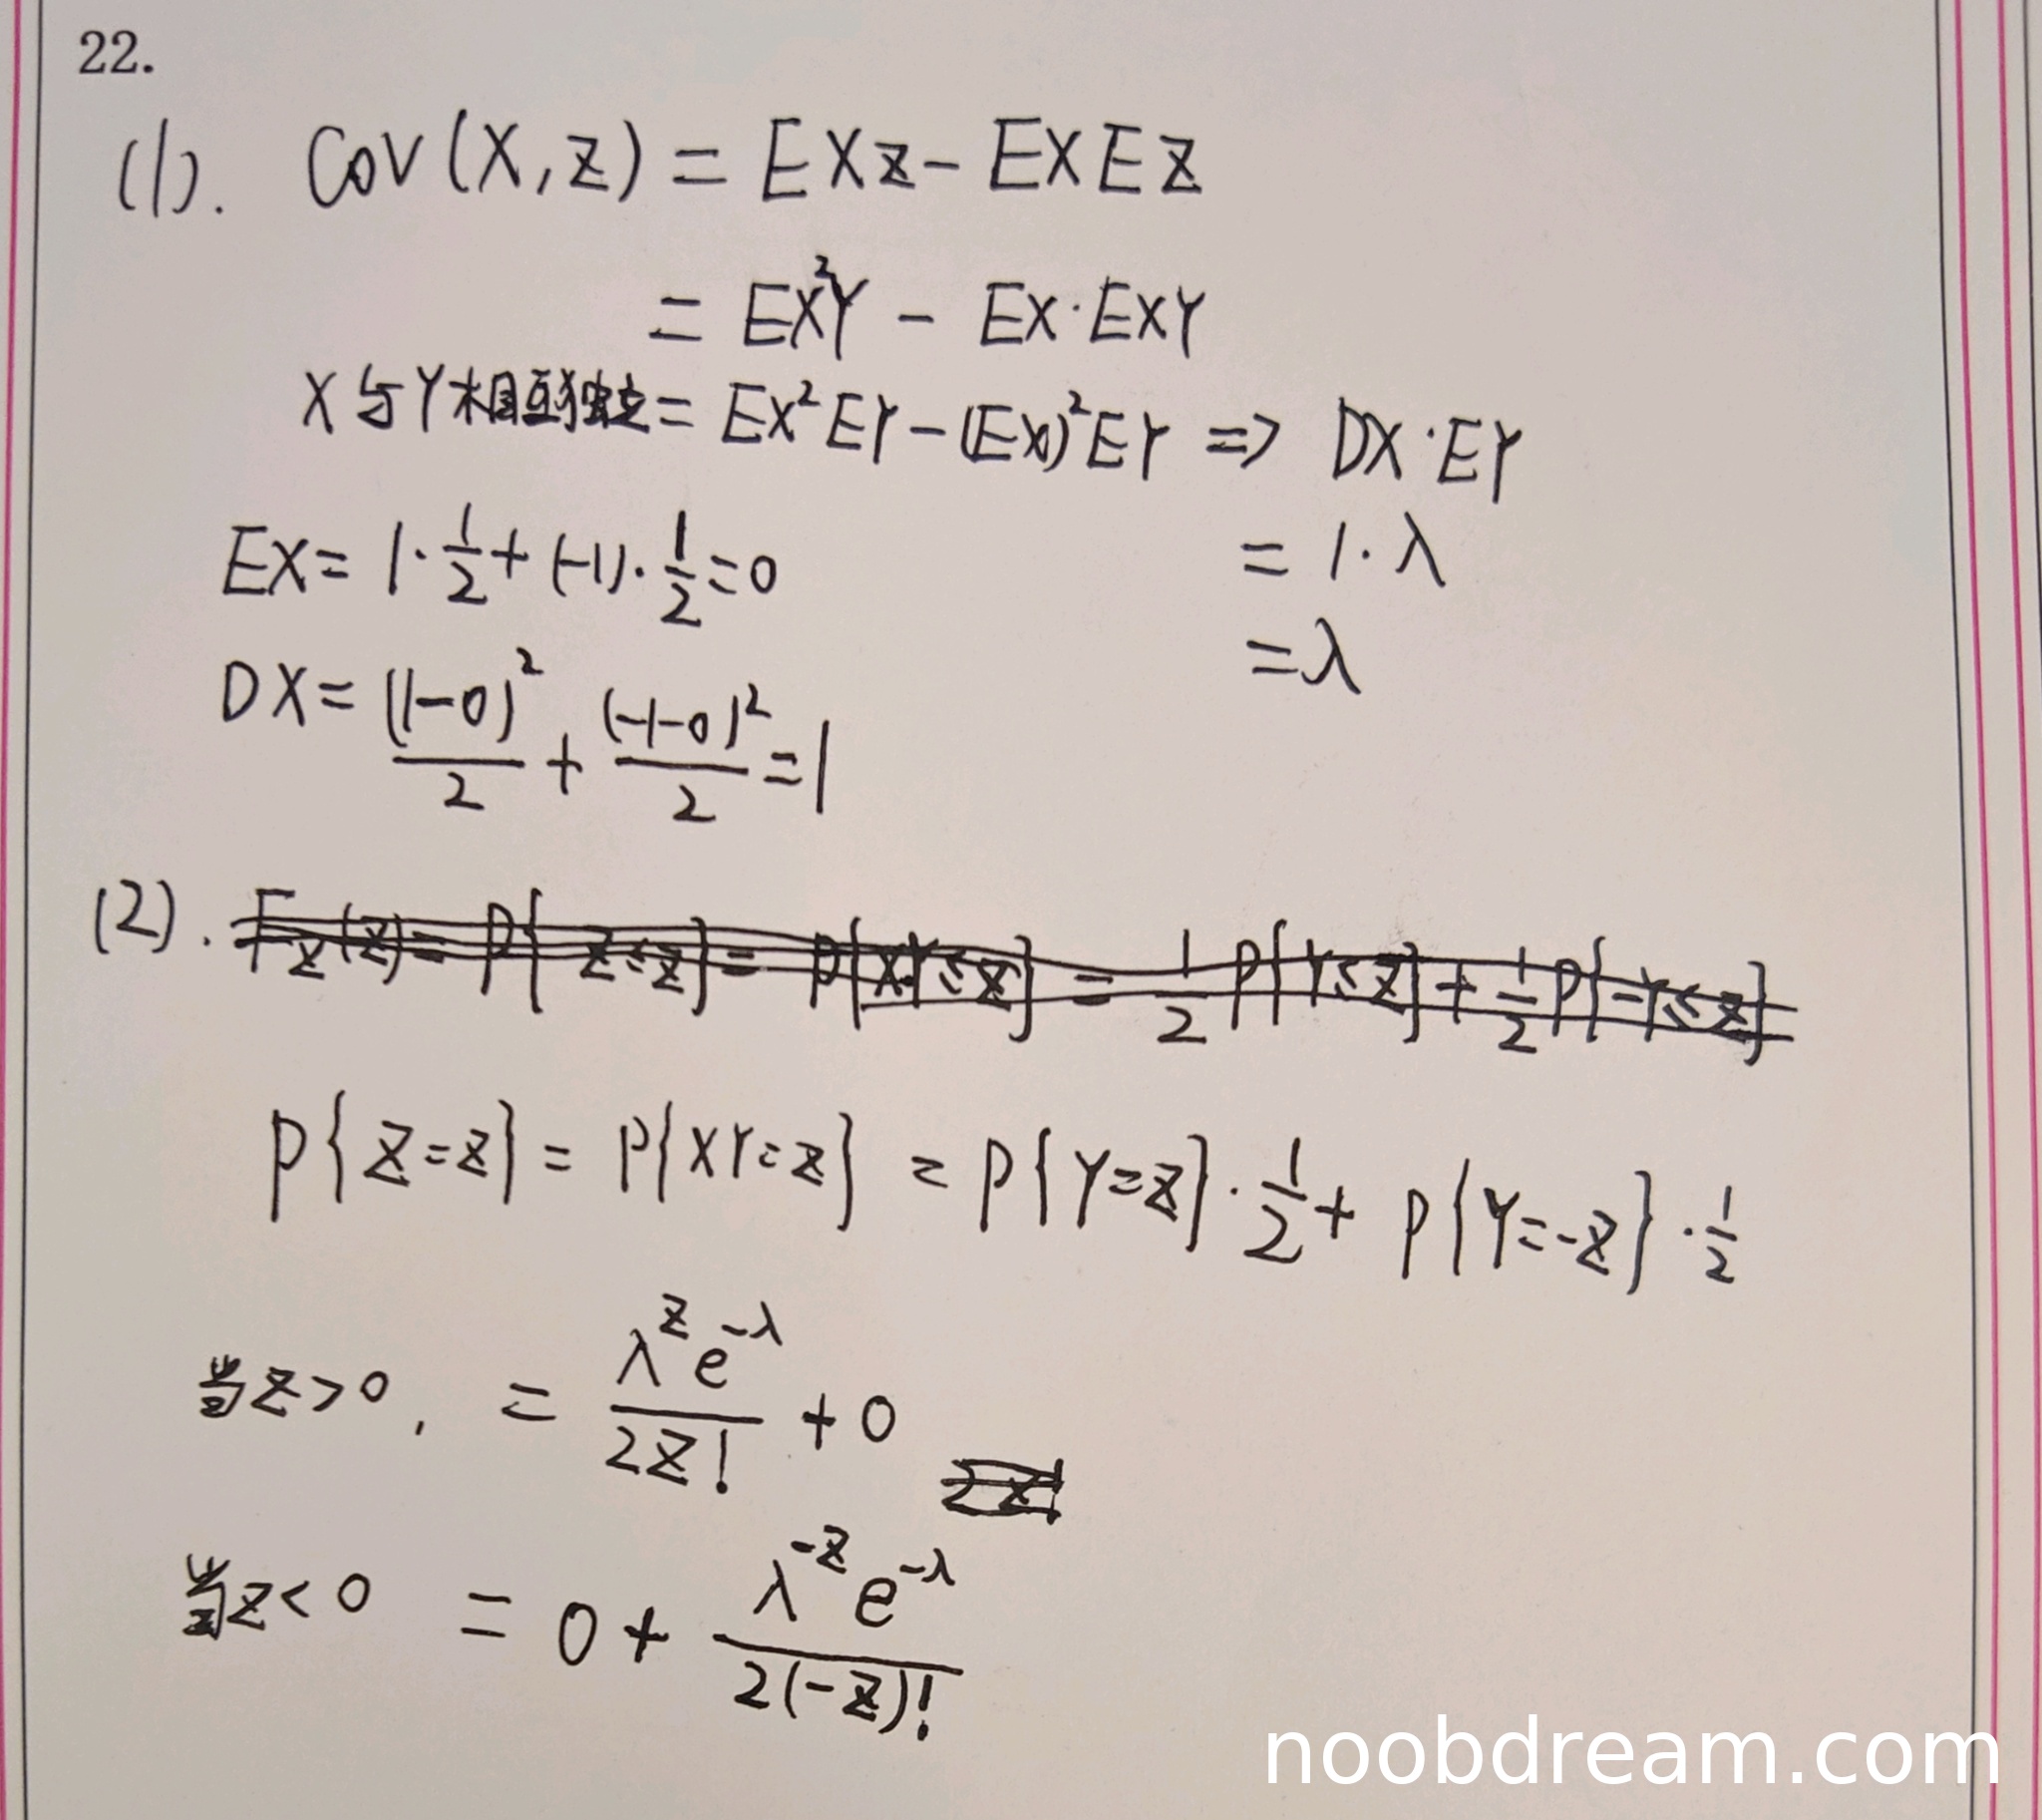 22.
(1). Cov(X,Z) = EXZ - EXEZ
= EX²Y - EX·EXY
X与Y相互独立 = EX²EY - (EX)²EY => DX·EY
EX = 1·1/2 + (-1)·1/2 = 0
= 1·λ
= λ
DX = (1-0)²/2 + (-1-0)²/2 = 1
(2). F_Z(z) = P{Z≤z} = P{XY≤z} = 1/2 P{Y≤z} + 1/2 P{-Y≤z}
P{Z=z} = P{XY=z} = P{Y=z}·1/2 + P{Y=-z}·1/2
当z>0, = λ^z e^(-λ)/(2z!) + 0
2z!
当z<0 = 0 + λ^(-z) e^(-λ)/(2(-z)!)
noobdream.com